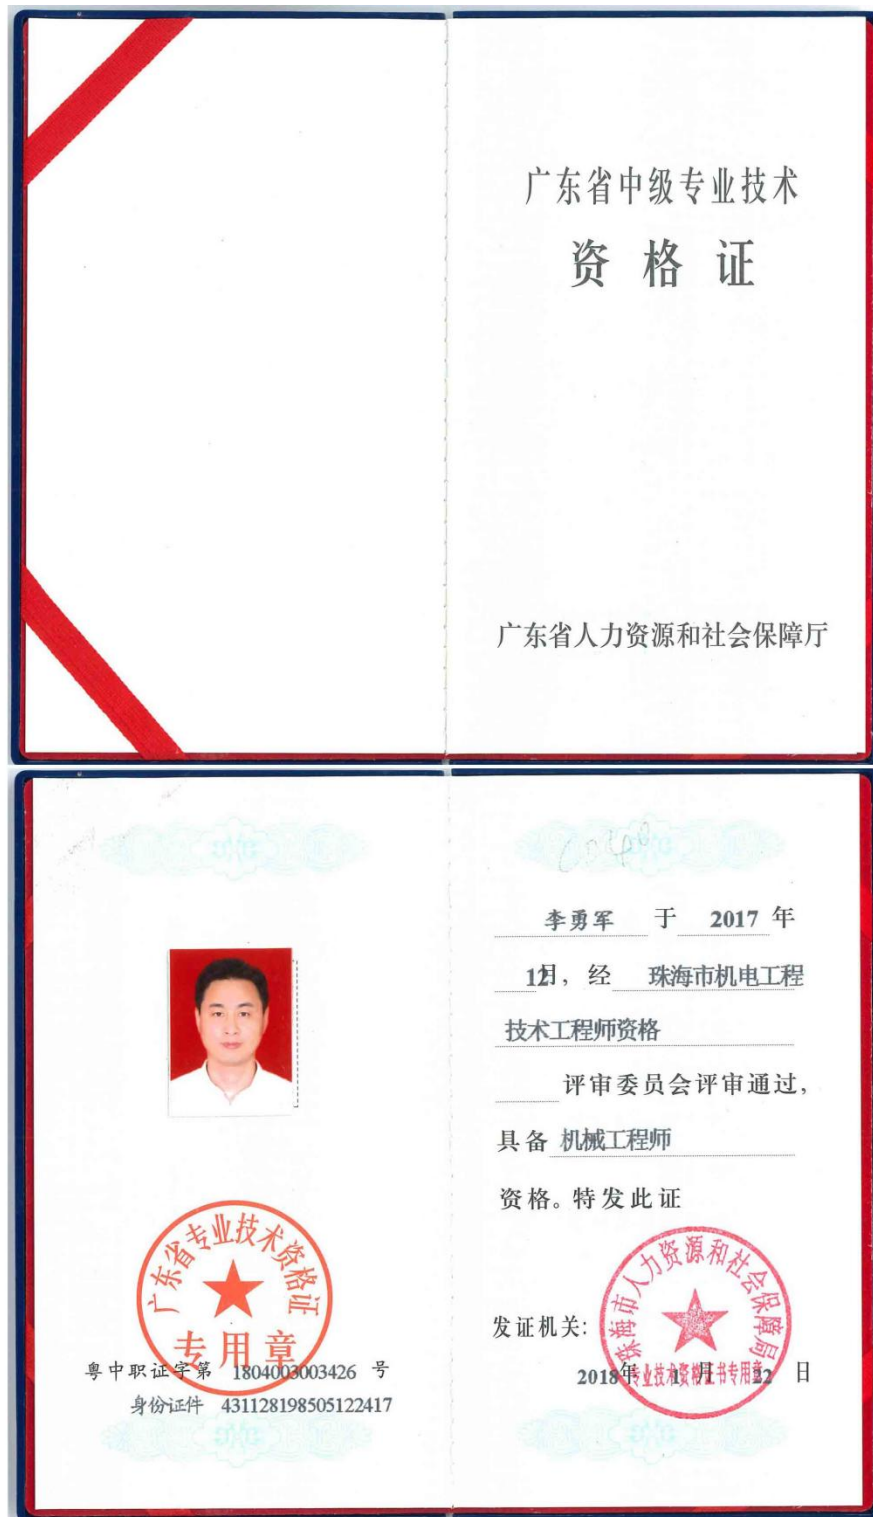 广东省中级专业技术
资格证
广东省人力资源和社会保障厅
广东省专业技术资格证
专用章
粤中职证字第 1804003003426 号
身份证件 431128198505122417
李勇军 于 2017 年
12月，经 珠海市机电工程
技术工程师资格
评审委员会评审通过，
具备 机械工程师
资格。特发此证
珠海市人力资源和社会保障局
发证机关：
专业技术资格证书专用章
2018年 1 月 22 日